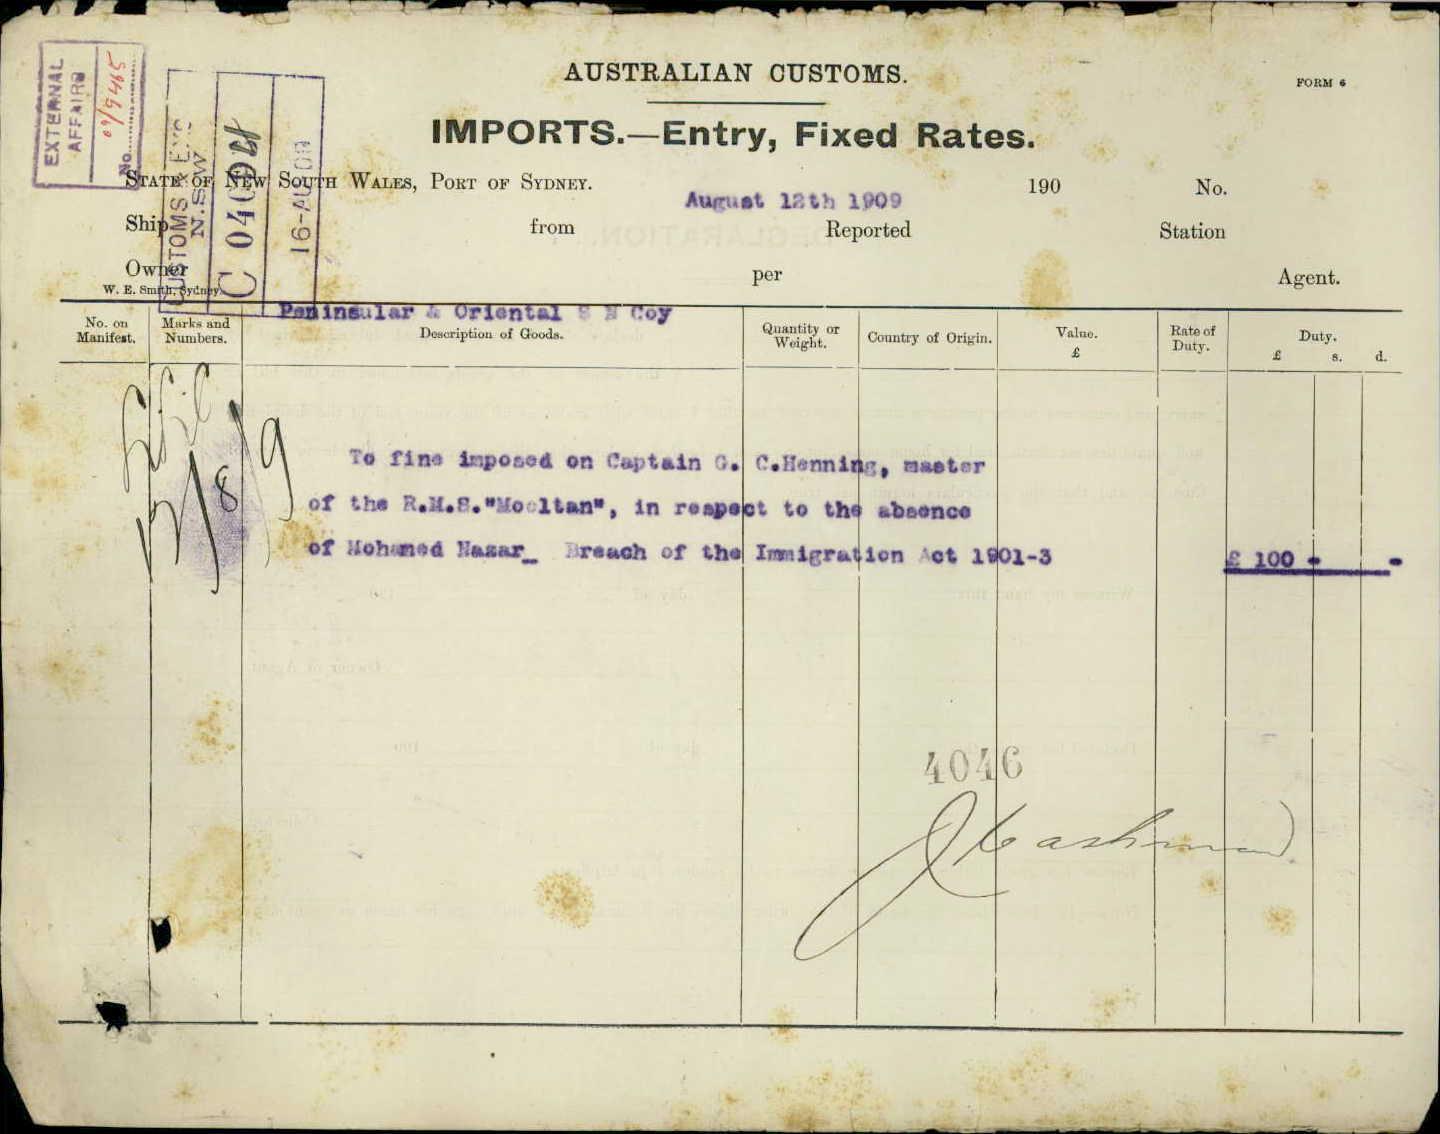 EXTERNAL
AFFAIRS
No. 09/9465
CUSTOMS & EXC
N.S.W
C 04024
16-AU 09
AUSTRALIAN CUSTOMS.
FORM 6
IMPORTS.—Entry, Fixed Rates.
STATE OF NEW SOUTH WALES, PORT OF SYDNEY. August 12th 1909 190 No.
Ship from Reported Station
Owner per Agent.
W. E. Smith, Sydney.
Peninsular & Oriental S N Coy
No. on Manifest. Marks and Numbers. Description of Goods. Quantity or Weight. Country of Origin. Value. £ Rate of Duty. Duty. £ s. d.
To fine imposed on Captain G. C.Henning, master
of the R.M.S."Mooltan", in respect to the absence
of Mohamed Nazar_ Breach of the Immigration Act 1901-3 £ 100 - -
12/8/9
4046
J Cashman